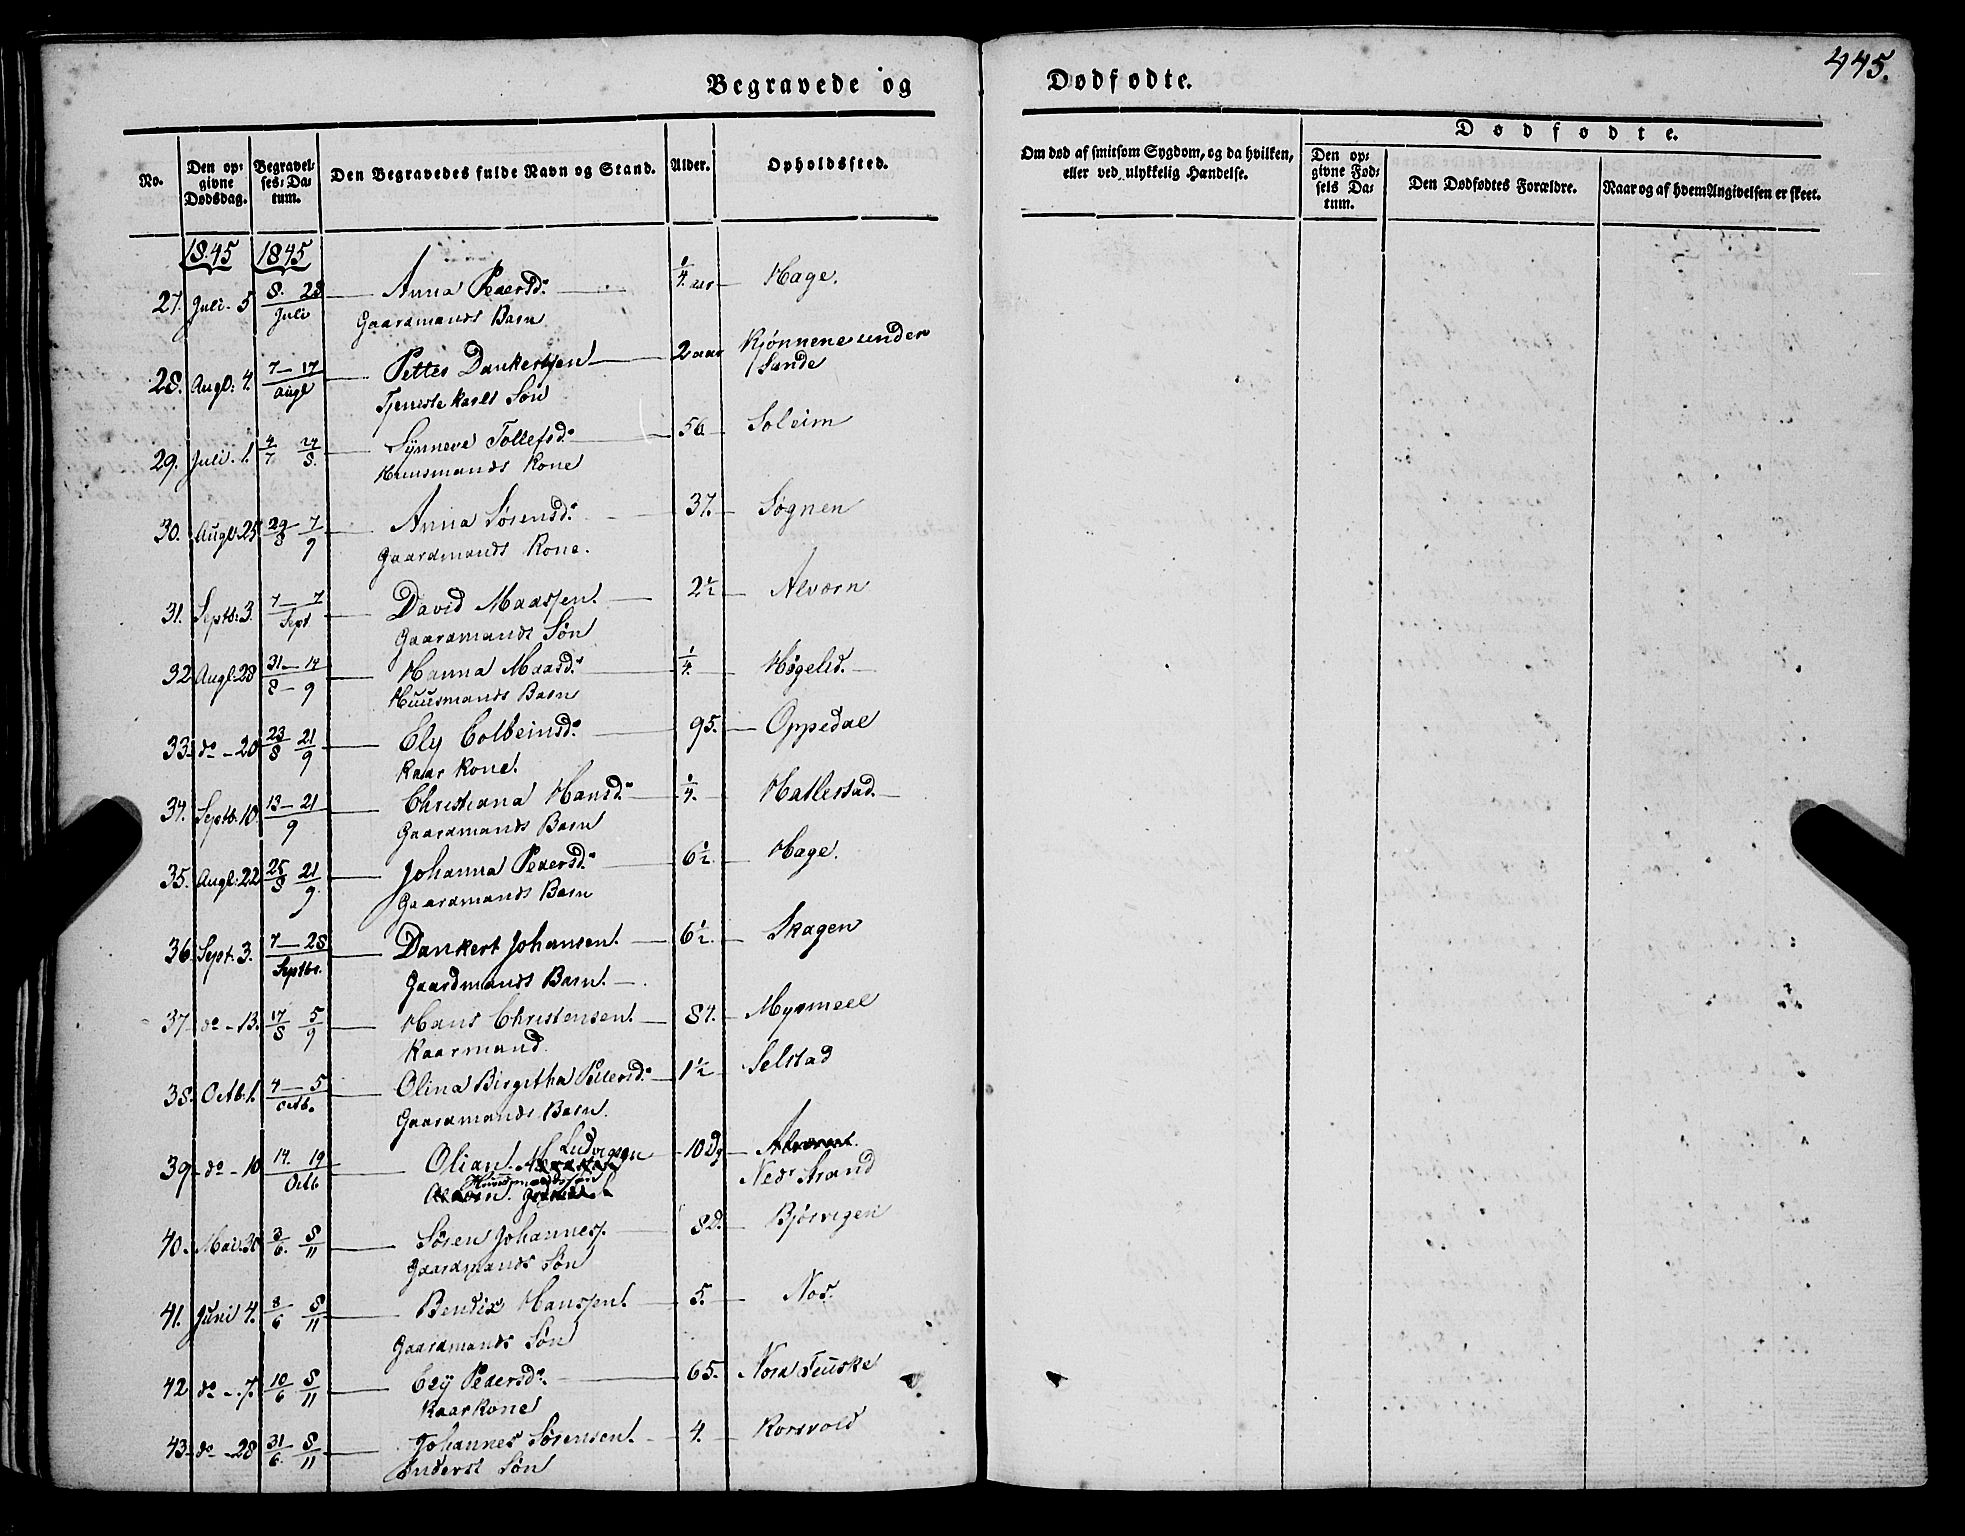 445.
Begravede og Dødfødte.
Dødfødte.
No.
Den opgivne Dødsdag.
Begravelses-Datum.
Den Begravedes fulde Navn og Stand.
Alder.
Opholdssted.
Om død af smitsom Sygdom, og da hvilken, eller ved ulykkelig Hændelse.
Den opgivne Fødsels Datum.
Den Dødfødtes Forældre.
Naar og af hvem Angivelsen er skeet.
1845 1845
27. Juli. 5 8. 28 Juli Anna Pedersd. 1/4 aar Hage.
Gaardmands Barn
28. Augl: 4. 7 - 17 Augl Petter Dankertsen 2 aar Kjønnene under Sande
Tjenestekarls Søn
29. Juli. 1. 4/7 24/8. Synneve Tollefsd. 56 Soleim
Huusmands Kone
30. Augl. 25. 29/8 7/9 Anna Sørensd. 37. Søgnen
Gaardmands Kone.
31. Septb: 3. 7 - 7 Sept David Maassen. 2 1/2 Alværn
Gaardmands Søn
32. Augl. 28 31 - 14 8 - 9 Hanna Maasd. 1/4. Høgelid.
Huusmands Barn
33. do - 20 23/8 21/9 Ely Colbeinsd. 95. Oppedal
Kaar Kone.
34. Septb. 10. 13 - 21 9 Christiana Hansd. 1/4. Hatlestad.
Gaardmands Barn
35. Augl: 22 25/8 21/9. Johanna Pedersd. 6 1/2 Hage.
Gaardmands Barn
36. Sept. 3. 7 - 28 Septbr. Dankert Johansen. 6 1/2 Skagen
Gaardmands Barn.
37. do - 13. 17/8 5/9 Hans Christensen. 84. Myrmeel
Kaarmand
38. Octb. 1. 4 - 5 Octb. Olina Birgitha Petersd. 1 1/2 Selstad
Gaardmands Barn.
39. do - 10 14. 19 Octb Olian Ludvigsen 10 Dg
Huusmandssøn Nedr Strand
40. Mai. 30 3/6. 8/11 Søren Johannes. 8 D. Bjørvigen
Gaardmands Søn
41. Juni 4. 8/6 8/11 Bendix Hanssen. 5. Nos.
Gaardmands Søn
42. do - 7. 10/6 8/11 Ely Pedersd. 65. Nord Teuske
Kaarkone
43. do - 28 31/6. 8/11 Johannes Sørensen. 4. Korsvold
Inderst Søn